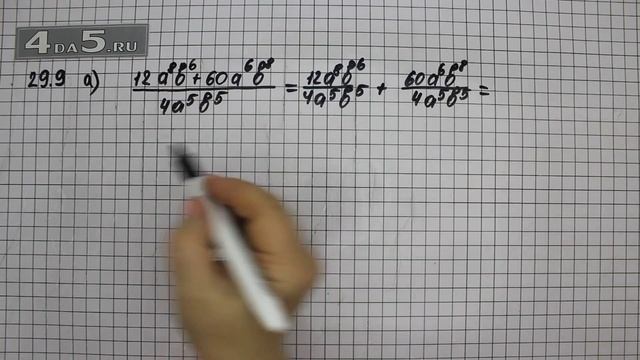 4DA5.RU
29.9 а) (12a⁸b⁶ + 60a⁶b⁸)/(4a⁵b⁵) = 12a⁸b⁶/4a⁵b⁵ + 60a⁶b⁸/4a⁵b⁵ =